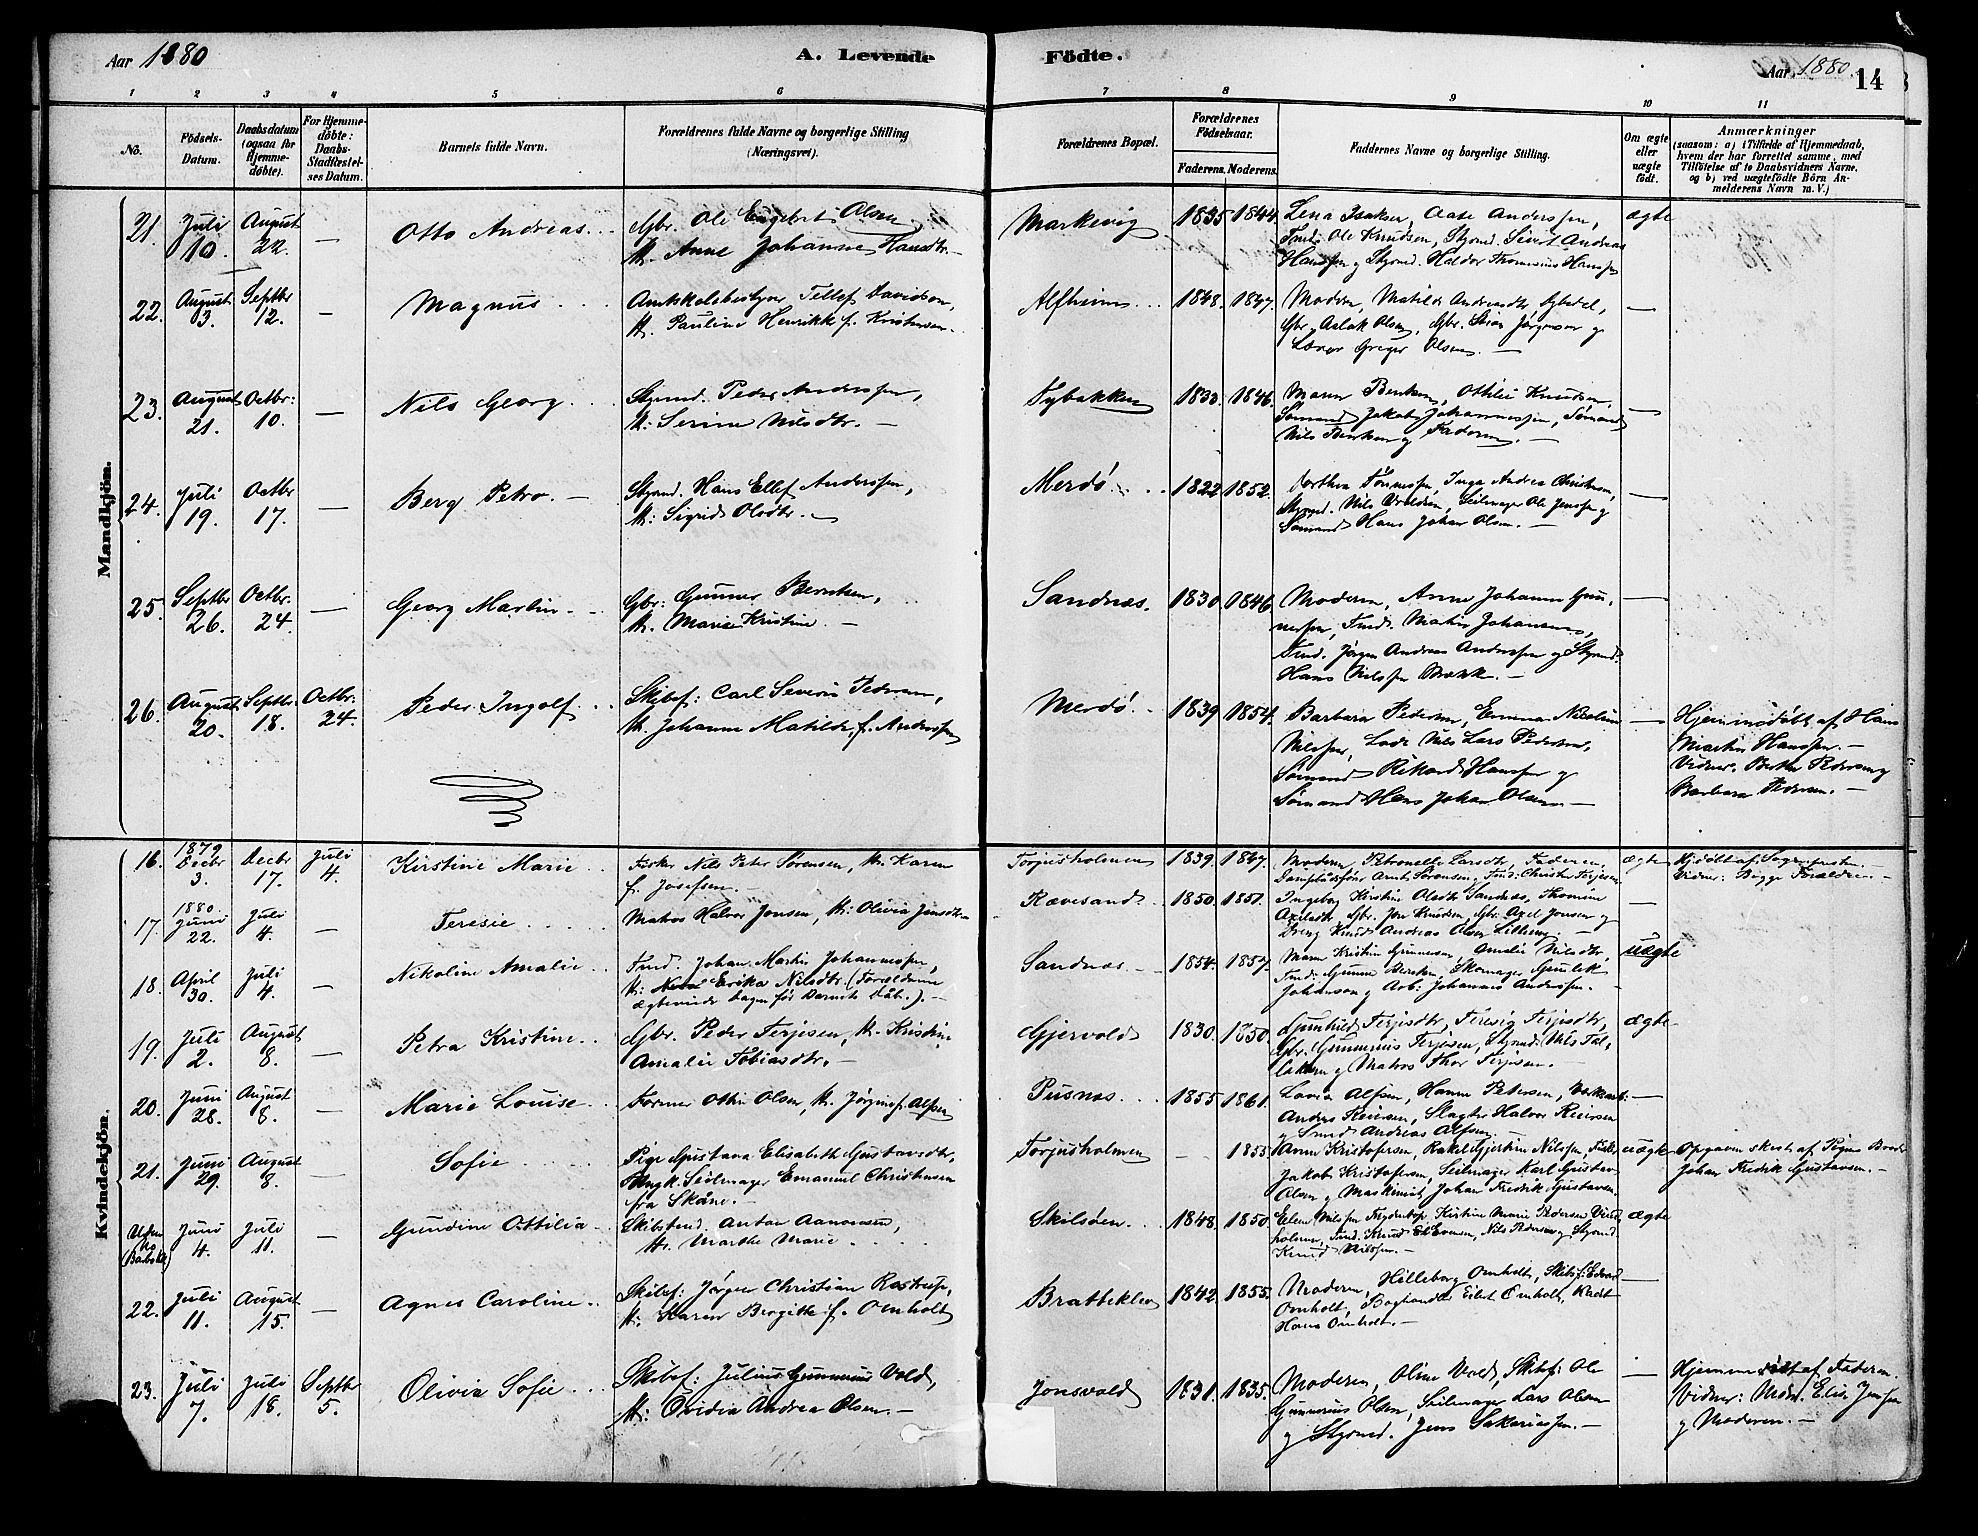 Aar 1880
A. Levende Födte.
Aar 1880
14
1 2 3 4 5 6 7 8 9 10 11
No.
Födsels-Datum.
Daabsdatum (ogsaa for Hjemme-døbte).
For Hjemme-døbte: Daabs-Stadfæstelses Datum.
Barnets fulde Navn.
Forældrenes fulde Navne og borgerlige Stilling (Næringsvei).
Forældrenes Bopæl.
Forældrenes Födselsaar.
Faderens. Moderens.
Faddernes Navne og borgerlige Stilling.
Om ægte eller uægte født.
Anmærkninger
(saasom: a) i Tilfælde af Hjemmedaab, hvem der har forrettet samme, med Tilføielse af to Daabsvidners Navne, og b) ved uægtefødte Börn Anmelderens Navn m. V.)
Mandkjön.
21. Juli 10. August 22. — Otto Andreas
Gbr. Ole Engebret Olsen
H. Anne Johanne Hansdtr.
Markevig 1835 1844
Lena Isaksen, Aase Anderssen,
Tmd. Ole Knudsen, Stgrmd. Sivert Andreas
Hanssen og Stgrmd. Haldor Thomenius Hanssen
ægte
22. August 13. Septbr 12. — Magnus
Amtskolebestyrer Tellef Davidsen,
H. Pauline Henrikke f. Kristensen
Alfheim 1848. 1847.
Moderen, Matilde Andreasdtr,
Gbr. Aslak Olsen, Gbr. Jørgensen og
Lærer Greger Olsen. —
23. August 21. Octbr: 10. — Nils Georg
Stgrmd. Peder Anderssen,
H: Serine Nilsdtr. —
Tybakken 1833. 1846.
Maren Bentsen, Ottilie Knudsen,
Sømand Jakob Johannessen, Sømand
Nils Bentsen og Faderen. —
24. Juli 19. Octbr 17. — Berg Petro. —
Stgrmd. Hans Ellef Anderssen,
H: Sigrid Olsdtr. —
Merdø 1822 1852.
Dorthea Tønnessen, Inga Andrea Christensen,
Stgrmd. Nils , Seilmager Ole Jenssen og
Sømand Hans Johan Olsen. —
25. Septbr 26. Octbr. 24. — Georg Martin
Gbr: Gunner Berntsen,
H. Marie Kristine. —
Sandnæs. 1830 1846
Moderen, Anne Johanne Gun-
nersen, Tmd. Martin Johansen,
Tmd. Jörgen Andreas Anderssen og Stgrmd.
Hans Nilssen Mærk. —
26. August 20. Septbr. 18. Octbr. 24. Peder Ingolf
Skibsf: Carl Severin Pedersen,
H. Johanne Matilde, f. Anderssen
Merdö 1839 1854.
Barbara Pedersen, Emma Nicoline
Nilssen, Lods Nils Lars Pedersen,
Sømand Rikard Hanssen og
Sømand Hans Johan Olsen. —
Hjemmedøbt af Hans
Martin Hanssen. —
Vidner: Berthe Pedersen og
Barbara Pedersen. —
Kvindekjön.
16. 1879 Decbr 3. Decbr 17. Juli 4. Kirstine Marie
Fisker Nils Peter Sørensen, H. Karen
f. Josefsen. —
Torjusholmen 1839. 1847.
Moderen, Petronelle Larsdtr, Faderen,
Dampbådsfører Arnt Sørensen, Tmd. Christen Terjesen
ægte
Hjdøbt af Sogneprsten.
Vidner: Begge Forældre. —
17. 1880 Juni 22. Juli 4. — Teresie
Matros Halvor Jonsen, H: Olivia Jensdtr. —
Rævesand 1850. 1851.
Ingeborg Kirstine Olsdtr Sandnæs, Thomine
Axelsdtr, Gbr. Jon Knudsen, Gbr. Axel Jonsen og
Dreng Knud Andreas Olsen
18. April 30. Juli 4. — Nikoline Amalie
Tmd. Johan Martin Johannessen,
H: Erika Nilsdtr. (Forældrene
ægteviede dagen før Barnets Dåb.). —
Sandnæs 1854. 1857.
Maren Kristine Gunnersen, Amalie Nilsdtr,
Tmd. Gunner Berntsen, Skomager Gundik
Johansen og Arb: Johannes Anderssen. —
uægte
19. Juli 2. August 8. — Petra Kristine
Gbr. Peder Terjesen, H. Kristine
Amalie Tobiasdtr. —
Gjervold 1830. 1850.
Gunhild Terjesdtr, Teresie Terjesdtr,
Gbr. Gunnerius Terjesen, Stgrmd. Nils Fal-
laksen og Matros Thor Terjesen.
ægte
20. Juni 28. August 8. — Marie Louise
Former Ottin Olsen, H. Jørgine f. Alfsen
Pusnæs 1855 1861.
Lovise Alfsen, Hanne Petersen, Værksarb:
Anders Reiersen, Slagter Halvor Reiersen
og Smed Andreas Alfsen.
—
21. Juni 29. August 8. — Sofie
Pige Gustava Elisabeth Gustavsdtr,
Ungk. Seilmager Emanuel Christensen
fra Skåne. —
Torjusholmen — 1855
Anne Kristofersen, Rakel Gjertine Nilssen, Fisker
Jakob Kristofersen, Seilmager Karl Gustav
Olsen og Maskinist Johan Fredrik Gustavsen.
uægte
Opgaven skeet af Pigens Broder
Johan Fredrik Gustavsen. —
Juni 4. Juli 11. — Gundine Ottilia
Skibstmd. Anton Aanonsen,
H. Marthe Marie
Skilsöen 1848. 1850.
Elen Nilssen , Kirstine Marie Pedersen Vind-
holmen, Tmd. Knud Evensen, Nils Pedersen og Stgrmd.
Knud Nilssen. —
ægte
22. Juli 11. August 15. — Agnes Caroline
Skibsf. Jørgen Christian Rostrup,
H. Karen Birgitte f. Omholt
Bratteklev 1842. 1855.
Moderen, Hilleborg Omholt, Skibsf: Edvard
Omholt, Boghandler Eilert Omholt, Kadt
Hans Omholt. —
—
23. Juli 7. Juli 18. Septbr 5. Olivia Sofie
Skibsf: Julius Gunnerius Vold,
H: Ovidia Andrea Olsen. —
Jonsvold 1831. 1835.
Moderen, Oline Vold, Skibsf: Ole
Gunnerius Olsen, Seilmager Lars Olsen
og Stgrmd. Jens Sakariassen. —
—
Hjemmedøbt af Faderen.
Vidner: Madm. Elise Jenssen
og Moderen. —